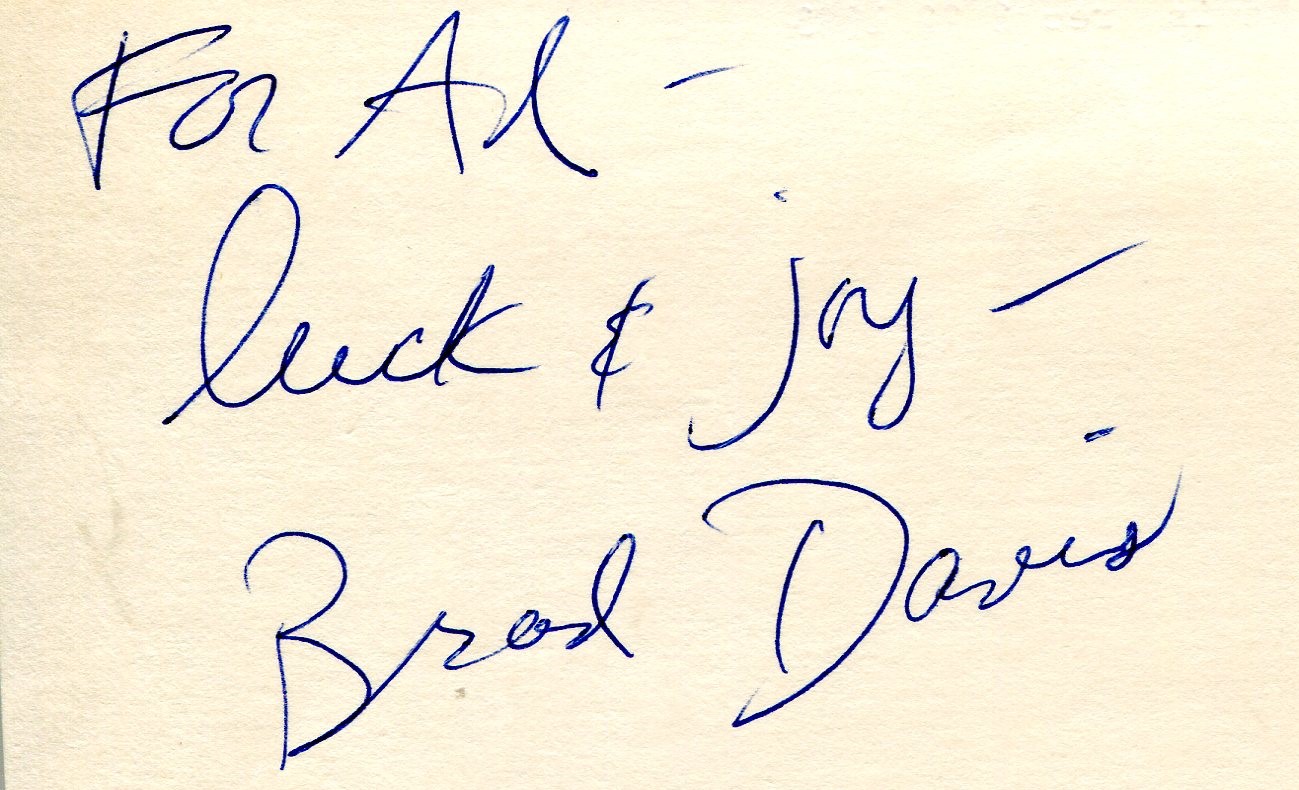 For Ad -
luck & joy -
Brad Davis